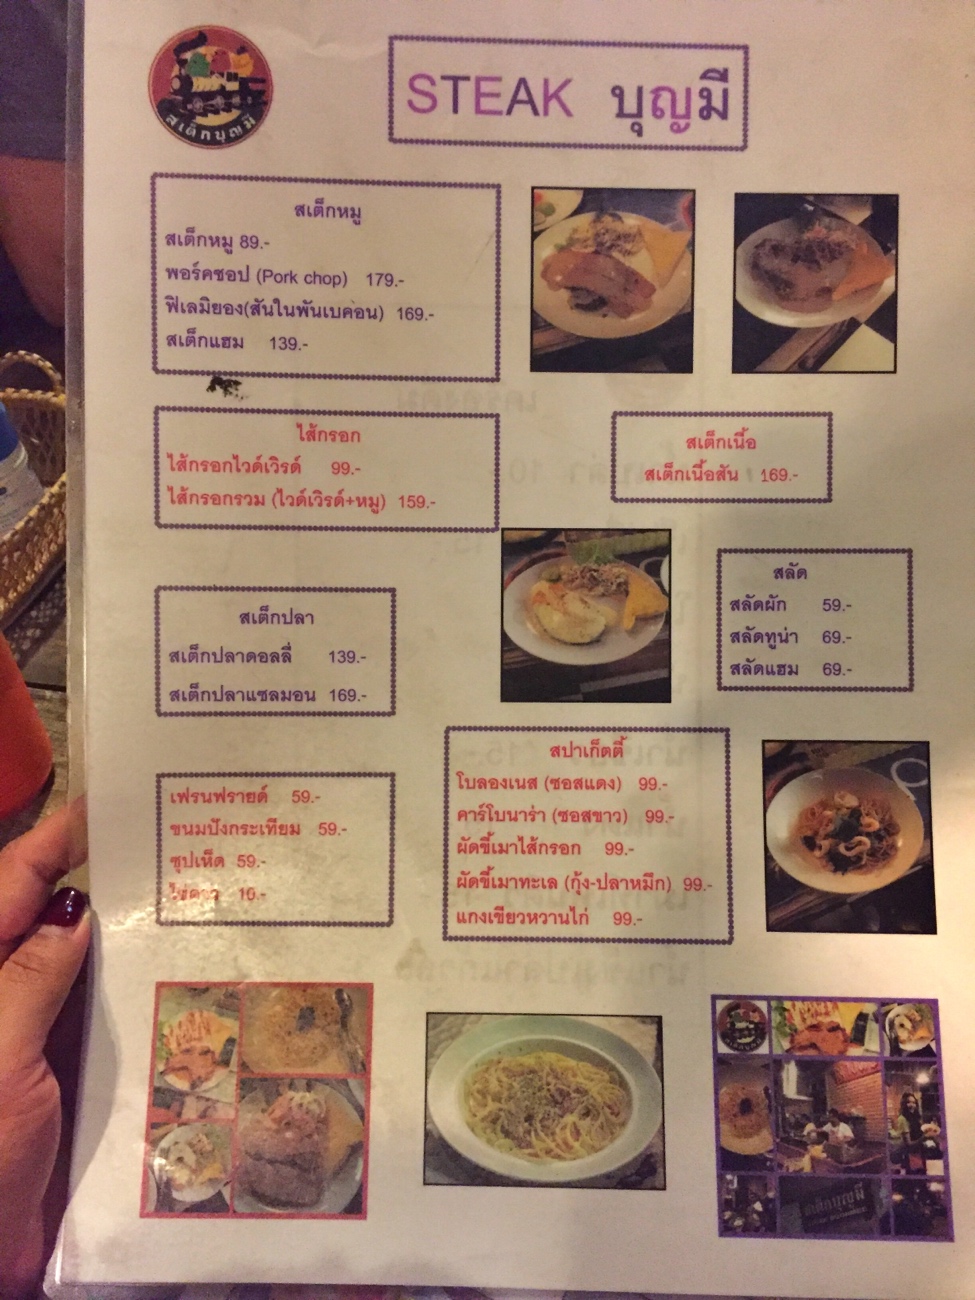 สเต็กบุญมี
STEAK บุญมี
สเต็กหมู
สเต็กหมู 89.-
พอร์คชอป (Pork chop) 179.-
ฟิเลมิยอง(สันในพันเบคอน) 169.-
สเต็กแฮม 139.-
ไส้กรอก
ไส้กรอกไวด์เวิรด์ 99.-
ไส้กรอกรวม (ไวด์เวิรด์+หมู) 159.-
สเต็กเนื้อ
สเต็กเนื้อสัน 169.-
สเต็กปลา
สเต็กปลาดอลลี่ 139.-
สเต็กปลาแซลมอน 169.-
สลัด
สลัดผัก 59.-
สลัดทูน่า 69.-
สลัดแฮม 69.-
เฟรนฟรายด์ 59.-
ขนมปังกระเทียม 59.-
ซุปเห็ด 59.-
ไข่ดาว 10.-
สปาเก็ตตี้
โบลองเนส (ซอสแดง) 99.-
คาร์โบนาร่า (ซอสขาว) 99.-
ผัดขี้เมาไส้กรอก 99.-
ผัดขี้เมาทะเล (กุ้ง-ปลาหมึก) 99.-
แกงเขียวหวานไก่ 99.-
สเต็กบุญมี